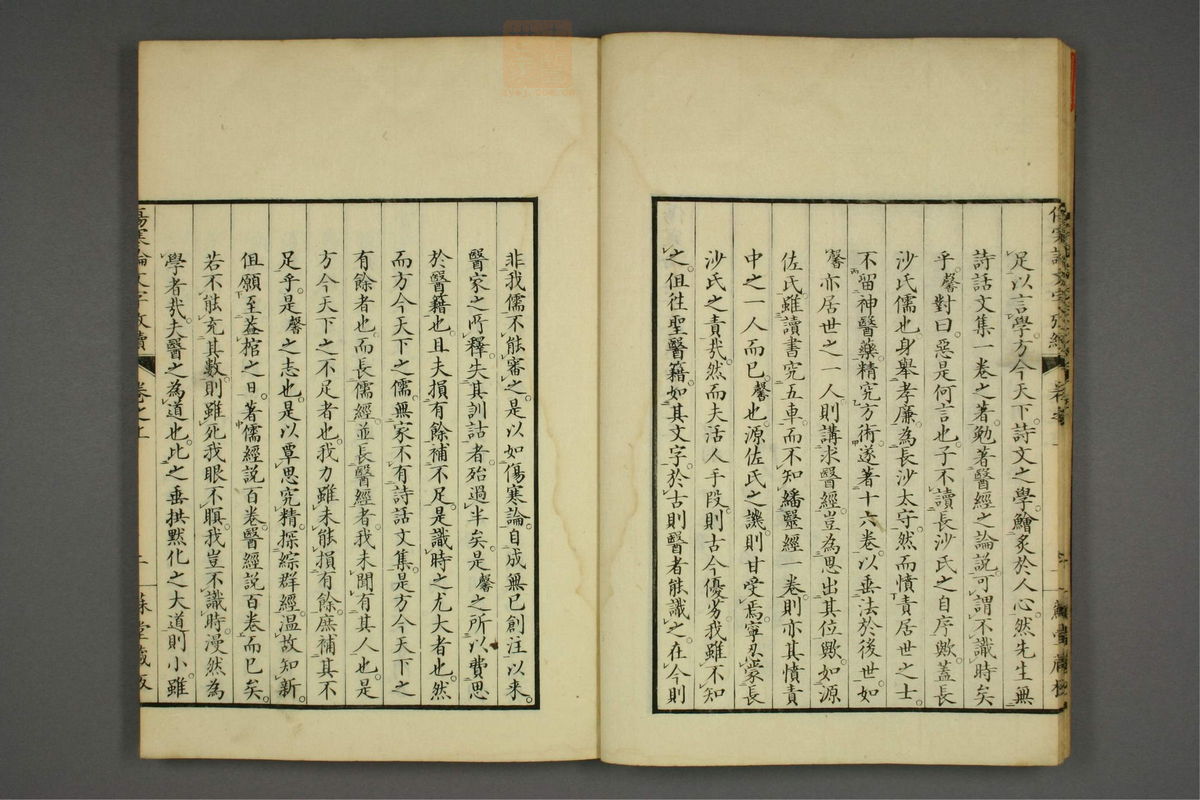 足以言學方今天下詩文之學鱠炙於人心然先生無
詩話文集一卷之著勉著醫經之論說可謂不識時矣
乎馨對曰惡是何言也子不讀長沙氏之自序歟蓋長
沙氏儒也身舉孝廉為長沙太守然而憤責居世之士
不留神醫藥精究方術遂著十六卷以垂法於後世如
馨亦居世之一人則講求醫經豈為思出其位歟如源
佐氏雖讀書究五車而不知繙靈經一卷則亦其憤責
中之一人而已馨也源佐氏之譏則甘受焉寧忍蒙長
沙氏之責哉然而夫活人手段則古今優劣我雖不知
之但往聖醫籍如其文字於古則醫者能識之在今則
非我儒不能審之是以如傷寒論自成無已創注以来
醫家之所釋失其訓詁者殆過半矣是馨之所以費思
於醫籍也且夫損有餘補不足是識時之尤大者也然
而方今天下之儒無家不有詩話文集是方今天下之
有餘者也而長儒經並長醫經者我未聞有其人也是
方今天下之不足者也我力雖未能損有餘庶補其不
足乎是馨之志也是以覃思究精探綜群經温故知新
但願至蓋棺之日著儒經說百卷醫經說百卷而已矣
若不能充其數則雖死我眼不瞑我豈不識時漫然為
學者哉夫醫之為道也此之垂拱默化之大道則小雖
傷寒論文字攷續 卷之上